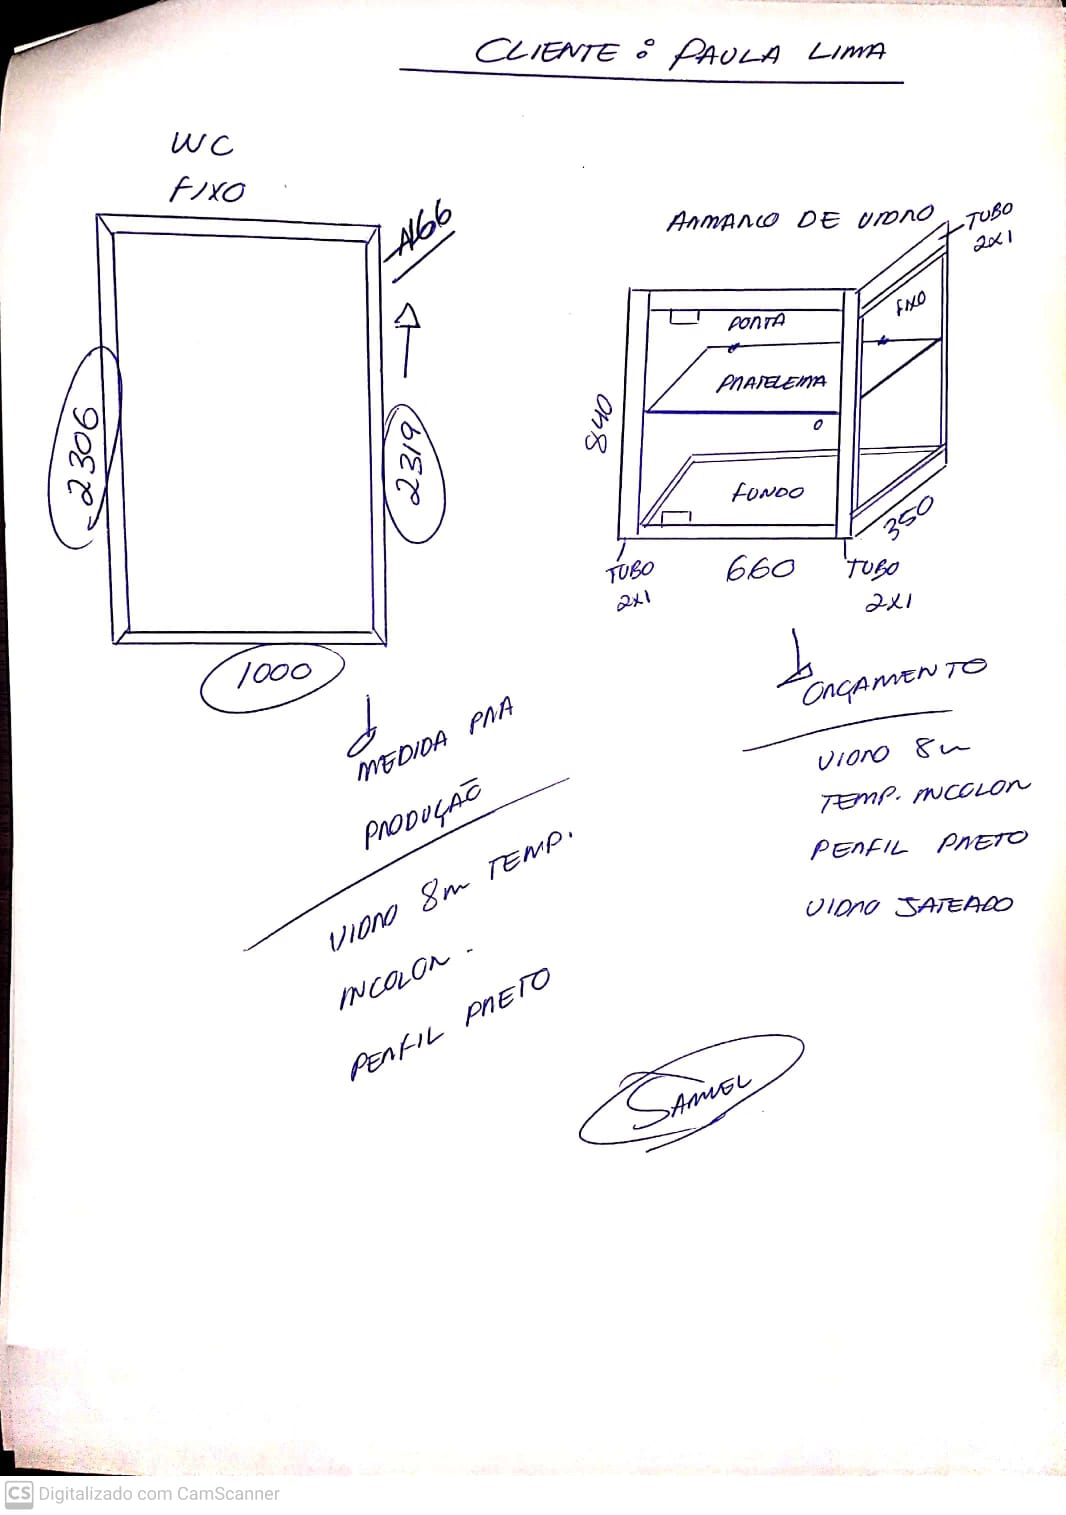 CLIENTE : PAULA LIMA
WC
FIXO
A166
2306
2319
1000
MEDIDA PRA
PRODUÇÃO
VIDRO 8m TEMP.
INCOLOR.
PERFIL PRETO
ARMARIO DE VIDRO
TUBO
2x1
FIXO
PORTA
PRATELEIRA
840
FUNDO
350
TUBO
2x1
660
TUBO
2x1
ORÇAMENTO
VIDRO 8m
TEMP. INCOLOR
PERFIL PRETO
VIDRO JATEADO
SAMUEL
CS Digitalizado com CamScanner